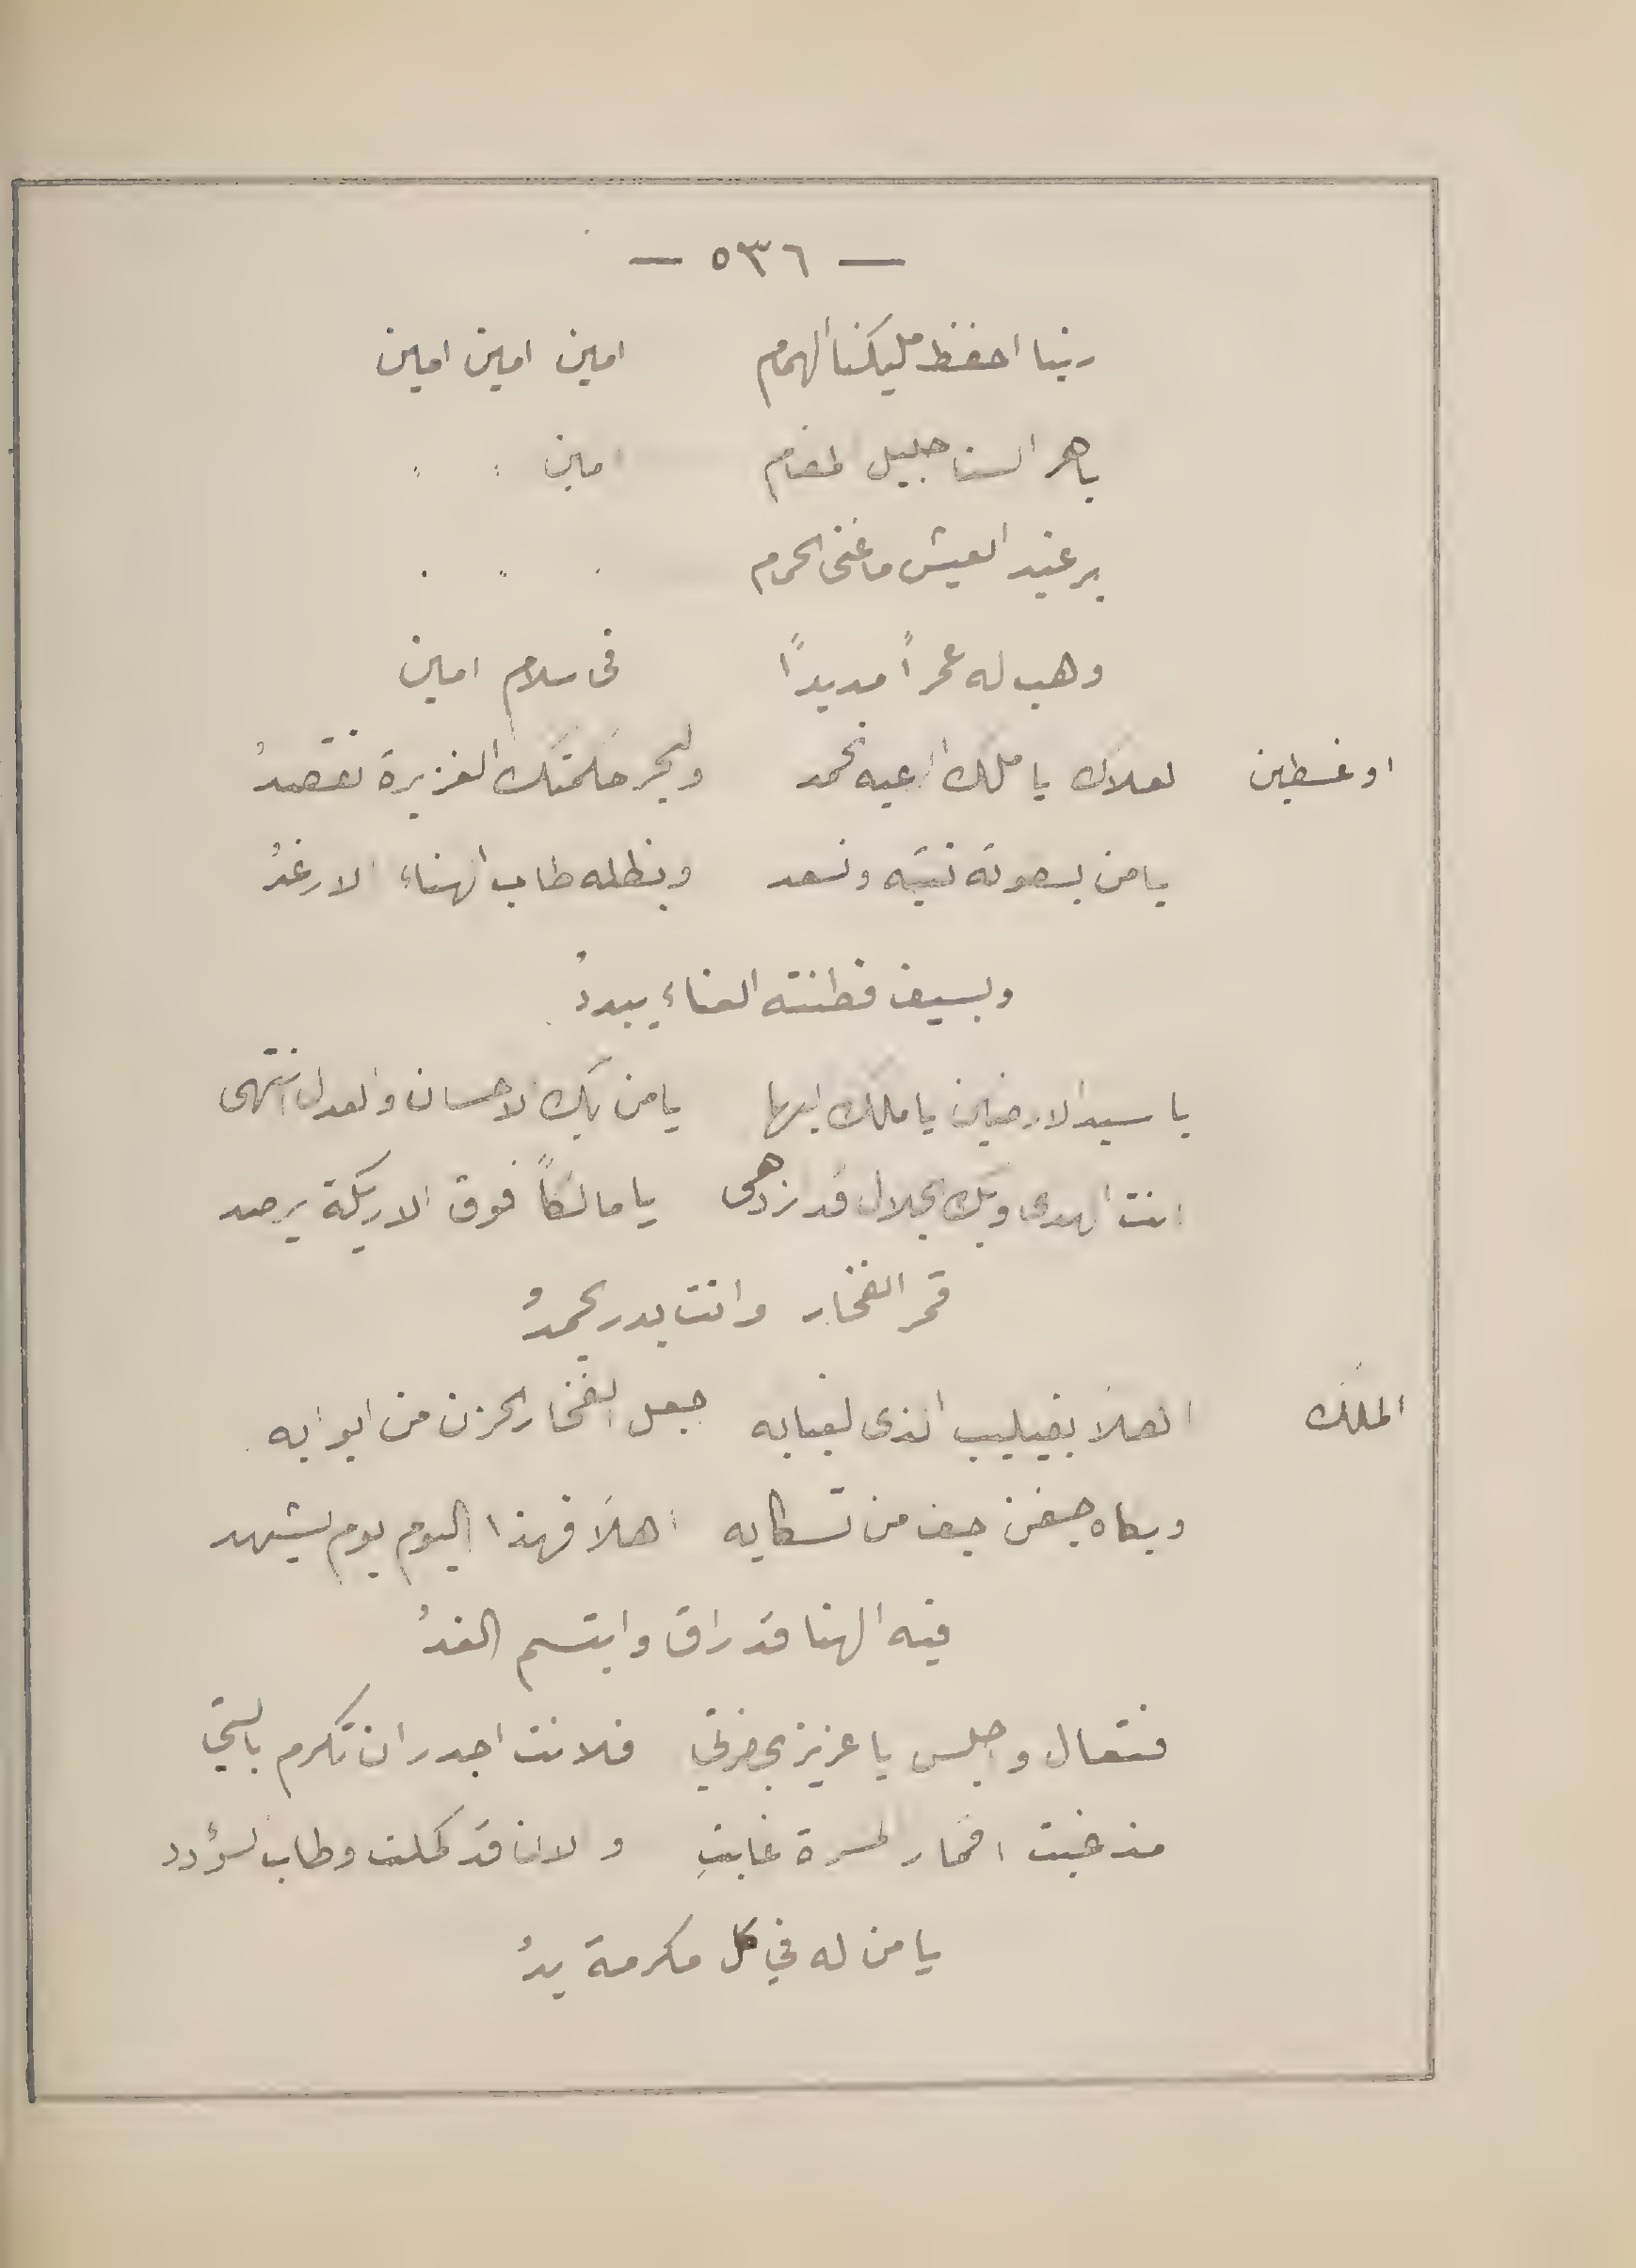 — ٥٣٦ —
ربنا احفظ مليكنا الهمام امين امين امين
باهر السنا جليل المقام امين : :
برغيد العيش ما غنى الحمام . . .
وهب له عمراً مديداً فى سلام امين
اوغسطين لعلاك يا ملك الرعيه نحمد ولبحر حكمتك الغزيرة نقصدُ
يا من بصوته نتيه ونسعد وبظله طاب الهناء الارغدُ
وبسيف فطنته العناء يبددُ
يا سيد الارضين يا ملك البها يا من بك الاحسان والعدل انتهى
انت الهدى وبك الجلال قد ازدهى يا مالكاً فوق الاريكة يرصد
قمر الفخار وانت بدر يحمدُ
الملك اهلا بفيليب الذى لغيابه جعل الفخار الحزن من ابوابه
وبكاه جفن جف من تسكابه اهلا فهذا اليوم يوم يشهد
فيه الهنا قد راق وابتسم الغدُ
فتعال واجلس يا عزيز بحضرتي فلانت اجدر ان تكرم بالتي
مذ غبت اقمار المسرة غابتِ والان قد كملت وطاب السؤدد
يا من له في كل مكرمة يدُ